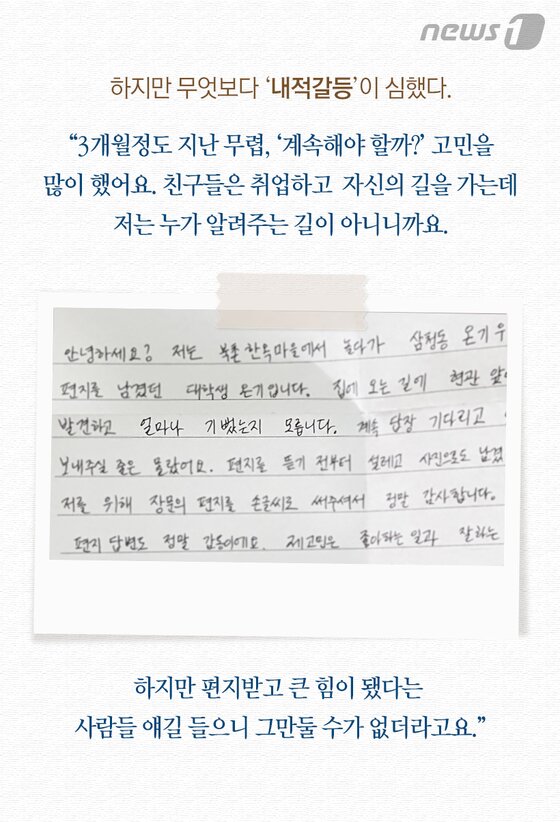 news1
하지만 무엇보다 ‘내적갈등’이 심했다.
“3개월정도 지난 무렵, ‘계속해야 할까?’ 고민을
많이 했어요. 친구들은 취업하고 자신의 길을 가는데
저는 누가 알려주는 길이 아니니까요.
안녕하세요? 저는 북촌한옥마을에서 놀다가 삼청동 온기우
편지를 남겼던 대학생 온기입니다. 집에 오는 길에 현관 앞에
발견하고 얼마나 기뻤는지 모릅니다. 계속 답장 기다리고
보내주실 줄은 몰랐어요. 편지를 뜯기 전부터 설레고 사진으로도 남겼
저를 위해 장문의 편지를 손글씨로 써주셔서 정말 감사합니다.
편지 답변도 정말 감동이에요. 제고민은 좋아하는 일과 잘하는
하지만 편지받고 큰 힘이 됐다는
사람들 얘길 들으니 그만둘 수가 없더라고요.”